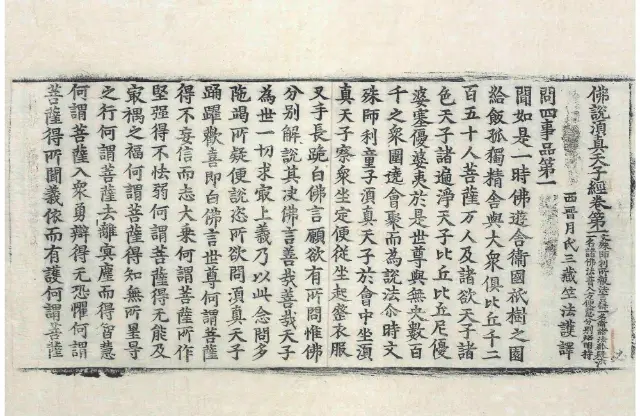 佛說須真天子經卷第一
西晉月氏三藏竺法護譯
問四事品第一
聞如是一時佛遊舍衛國祇樹之園
給飯孤獨精舍與大衆俱比丘千二
百五十人菩薩万人及諸欲天子諸
色天子諸遍淨天子比丘比丘尼優
婆塞優婆夷於是世尊與無央數百
千之衆圍遶會聚而為說法尒時文
殊師利童子須真天子於會中坐須
真天子察衆坐定便從坐起整衣服
叉手長跪白佛言願欲有所問惟佛
分別解說其決佛言善哉善哉天子
為世一切求㝡上義乃以此念問多
陁竭所疑便說恣所欲問須真天子
踊躍歡喜即白佛言世尊何謂菩薩
得不妄信而志大乗何謂菩薩所作
堅强得不怯弱何謂菩薩得無能及
㝡福之福何謂菩薩得知無所罣㝵
之行何謂菩薩去離㝠塵而得智慧
何謂菩薩入衆勇辯得无恐懼何謂
菩薩得所聞義依而有護何謂菩薩